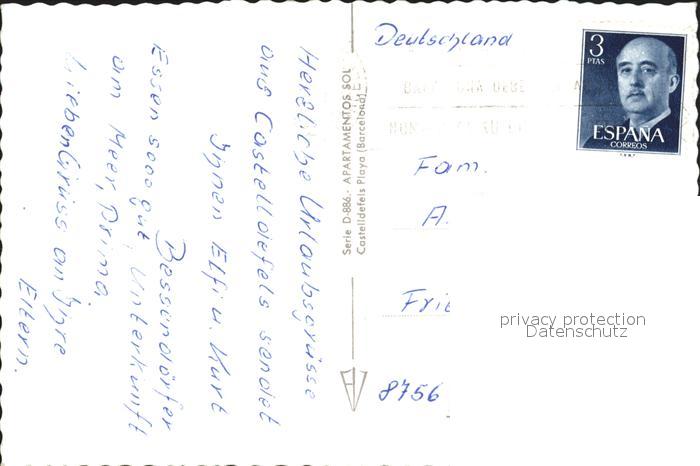 Herzliche Urlaubsgrüsse
aus Castelldefels sendet
Ihnen Elfi u. Kurt
Bessendörfer
Essen sooo gut, Unterkunft
am Meer, Prima.
Lieben Gruss an Ihre
Eltern.
Serie D-886.- APARTAMENTOS SOL
Castelldefels Playa (Barcelona)
Deutschland
3
PTAS
ESPAÑA
CORREOS
Fam.
A.
Frie
8756
privacy protection
Datenschutz